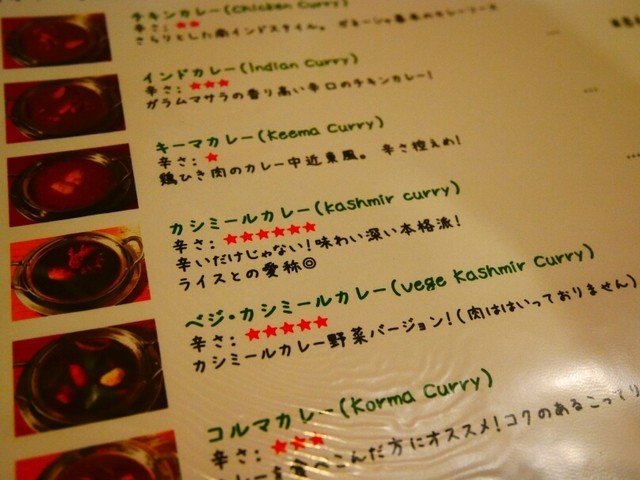 チキンカレー(Chicken Curry)
辛さ: ★★
さらりとした南インドスタイル。
インドカレー(Indian Curry)
辛さ: ★★★
ガラムマサラの香り高い辛口のチキンカレー!
キーマカレー(Keema Curry)
辛さ: ★
鶏ひき肉のカレー中近東風。 辛さ控えめ!
カシミールカレー(Kashmir curry)
辛さ: ★★★★★★
辛いだけじゃない!味わい深い本格派!
ライスとの愛称◎
ベジ・カシミールカレー(vege Kashmir Curry)
辛さ: ★★★★★
カシミールカレー野菜バージョン!(肉ははいっておりません)
コルマカレー(Korma Curry)
辛さ: ★★★
こんだ方にオススメ!コクのあるこってり